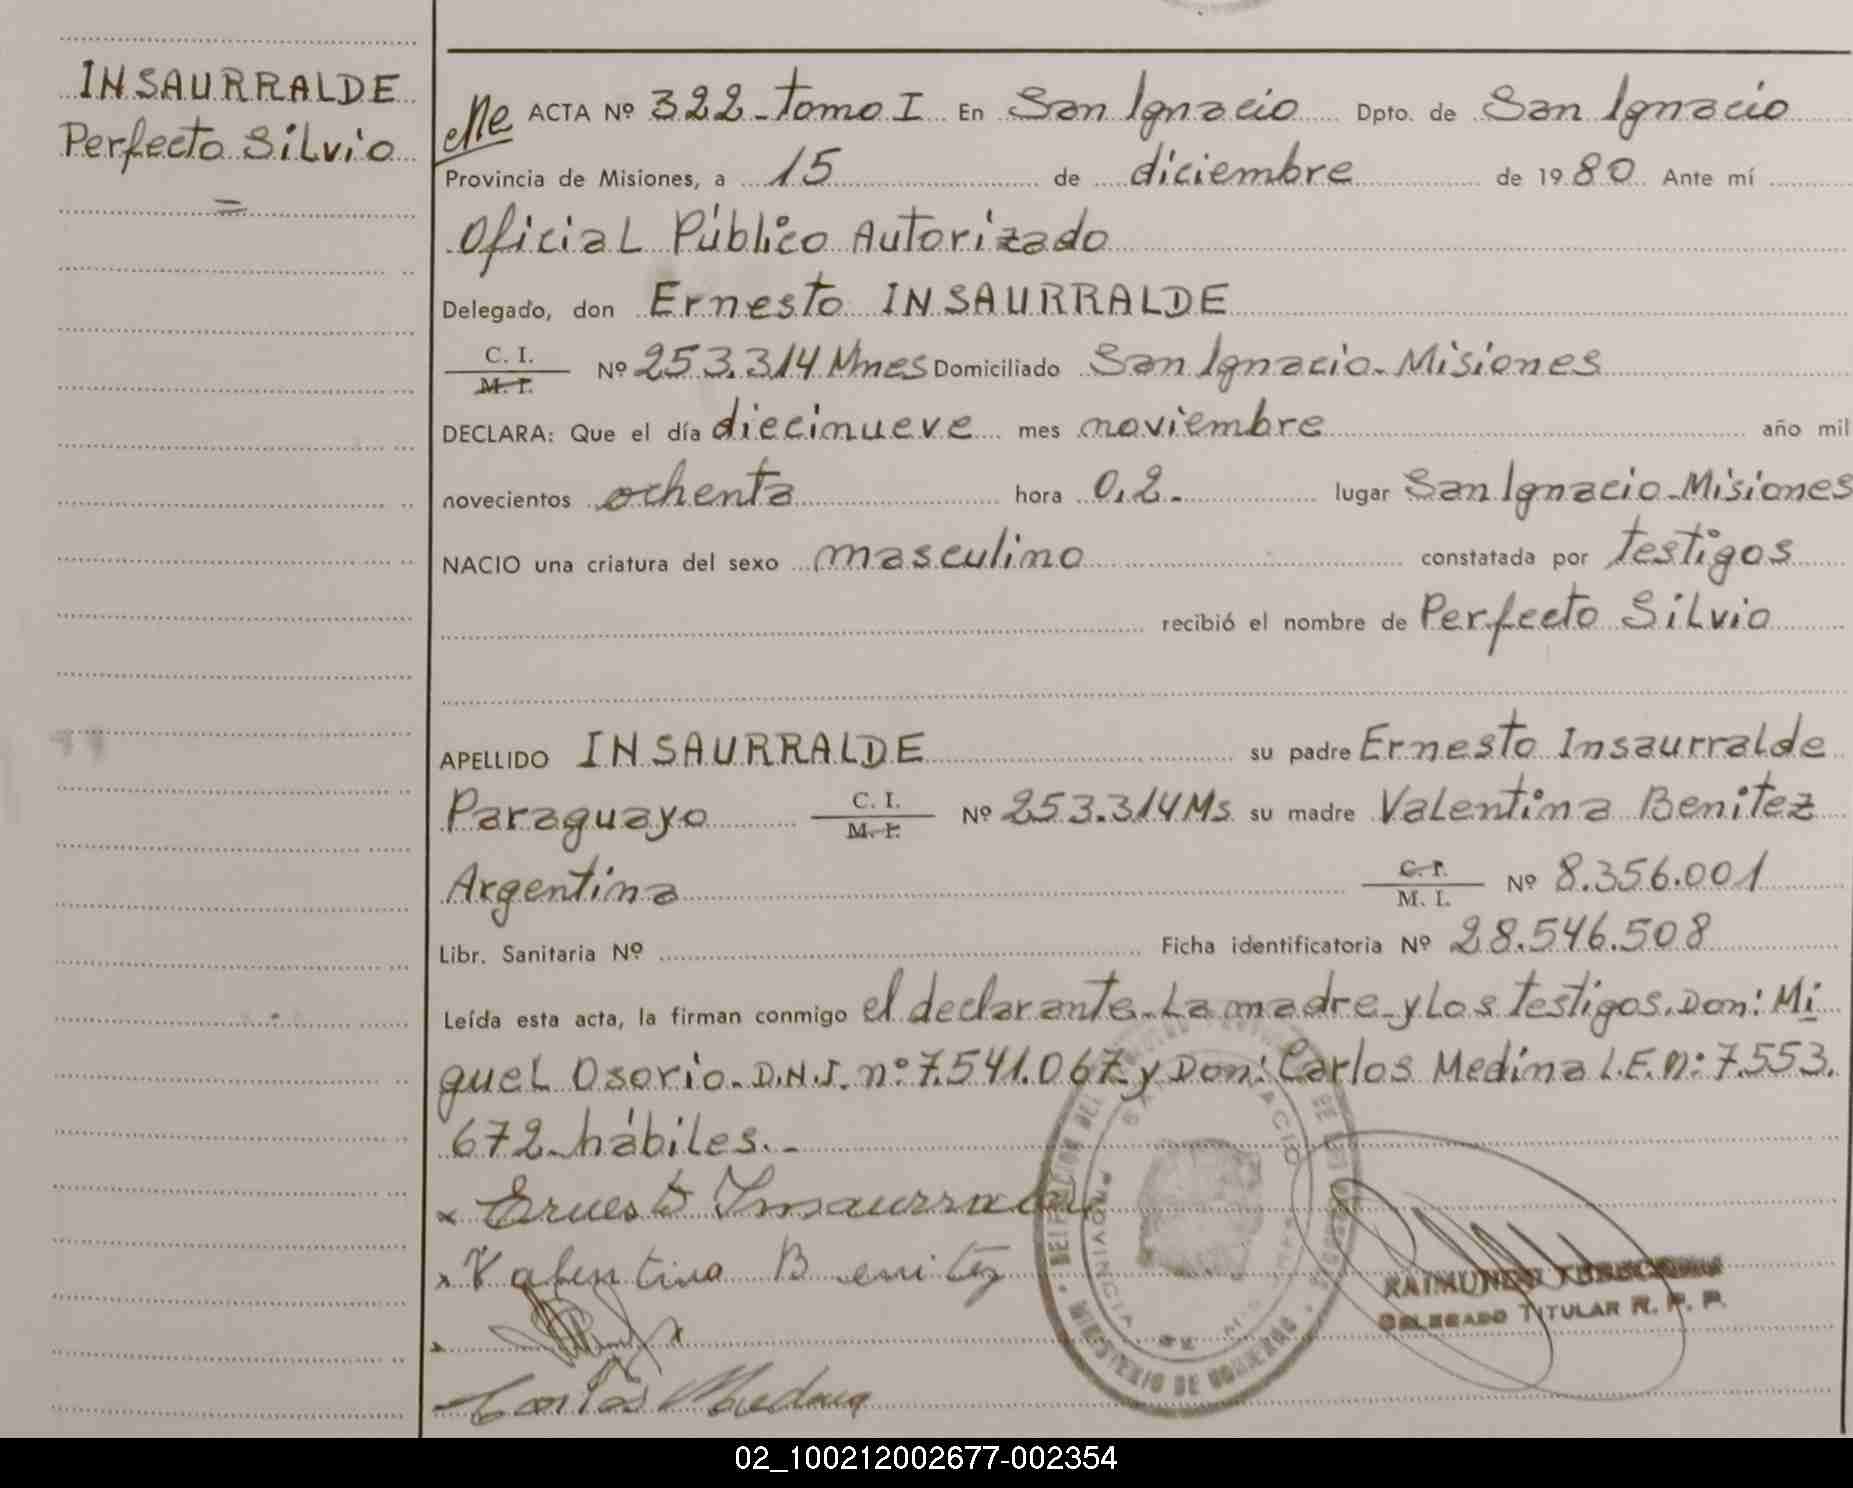 INSAURRALDE
Perfecto Silvio
=
ACTA Nº 322 - Tomo I En San Ignacio Dpto. de San Ignacio
Provincia de Misiones, a 15 de diciembre de 1980 Ante mí
Oficial Público Autorizado
Delegado, don Ernesto INSAURRALDE
C. I.
M. I. Nº 253.314 Mnes Domiciliado San Ignacio - Misiones
DECLARA: Que el día diecinueve mes noviembre año mil
novecientos ochenta hora 0,2.- lugar San Ignacio - Misiones
NACIO una criatura del sexo masculino constatada por testigos
recibió el nombre de Perfecto Silvio
APELLIDO INSAURRALDE su padre Ernesto Insaurralde
Paraguayo C. I. M. I. Nº 253.314 Ms su madre Valentina Benitez
Argentina C. I. M. I. Nº 8.356.001
Libr. Sanitaria Nº Ficha identificatoria Nº 28.546.508
Leída esta acta, la firman conmigo el declarante - La madre - y Los testigos. Don: Mi
guel Osorio - D.N.I. nº: 7.541.067 y Don: Carlos Medina L.E. n: 7.553.
672 - hábiles. -
x Ernesto Insaurralde
x Valentina Benitez
Carlos Medina
MINISTERIO DE GOBIERNO
PROVINCIA DE MISIONES
RAIMUNDO
DELEGADO TITULAR R. P. P.
02_100212002677-002354